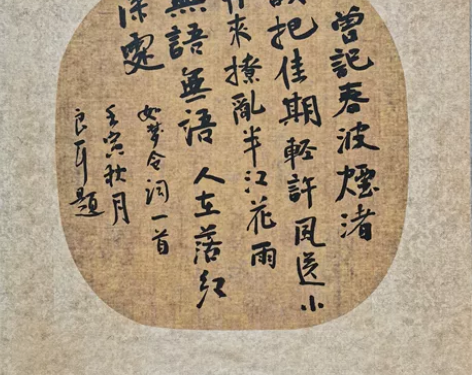 曾記春波煙渚
把佳期輕許風送小
來撩亂半江花雨
無語無語人在落紅
深處
如夢令詞一首
壬寅秋月
良題